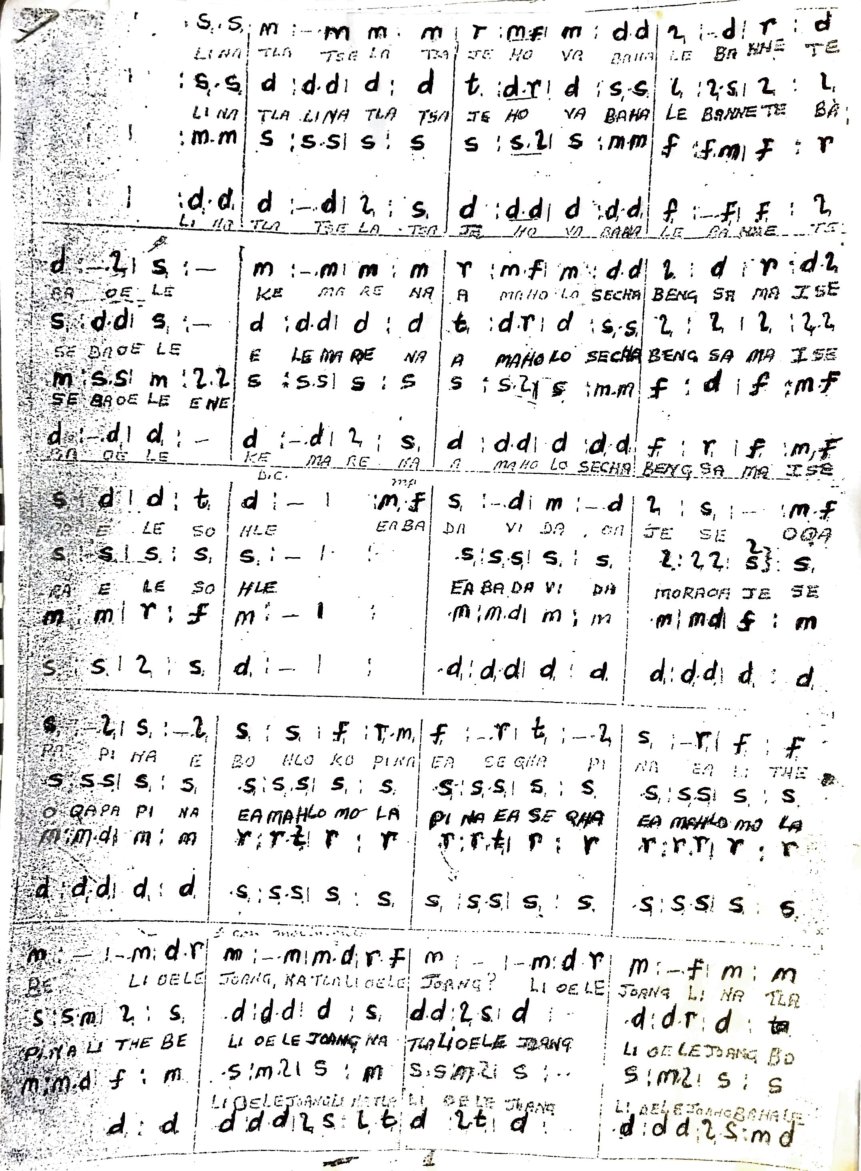 : s,.s, | m : – .m | m : m | r : m.f | m : d.d | l, : – .d | r : d
LI NA TLA TSE LA TSA JE HO VA BAHA LE BA NNE TE
: s,.s, | d : d.d | d : d | t, : d.r | d : s,.s, | l, : l,.s, | l, : l,
LI NA TLA LI NA TLA TSA JE HO VA BAHA LE BANNE TE BA
: m.m | s : s.s | s : s | s : s.l | s : m.m | f : f.m | f : r
: d.d | d : – .d | l, : s, | d : d.d | d : d.d | f, : – .f, | f, : l,
LI NA TLA TSE LA TSA JE HO VA BAHA LE BA NNE TE
d : – .l, | s, : – | m : – .m | m : m | r : m.f | m : d.d | l, : d | r : d.l,
BA OE LE KE MA RE NA A MAHO LO SECHA BENG SA MA I SE
s, : d.d | s, : – | d : d.d | d : d | t, : d.r | d : s,.s, | l, : l, | l, : l,.l,
SE BAOE LE E LE MA RE NA A MAHO LO SECHA BENG SA MA I SE
m : s.s | m : l.l | s : s.s | s : s | s : s.l | s : m.m | f : d | f : m.f
SE BAOE LE ENE
d : – .d | d : – | d : – .d | l, : s, | d : d.d | d : d.d | f, : r, | f, : m,.f,
BA OE LE KE MA RE NA A MAHO LO SECHA BENG SA MA I SE
D.C. mp
s, : d | d : t, | d : – | : m,.f, | s, : – .d | m : – .d | l, : s, | – : m,.f,
E LE SO HLE EA BA DA VI DA OA JE SE OQA
s, : s, | s, : s, | s, : – | : | .s, : s,.s, | s, : s, | l, : l,.l, | s, : s,
RA E LE SO HLE EA BA DA VI DA MORAOA JE SE
m : m | r : f | m : – | : | .m : m.d | m : m | .m : m.d | f : m
s, : s, | l, : s, | d : – | : | .d : d.d | d : d | d : d.d | d : d
s, : – .l, | s, : – .l, | s, : s, | f, : r,.m, | f, : – .r, | t, : – .l, | s, : – .r, | f, : f,
PA PI NA E BO HLO KO PINA EA SE QHA PI NA EA LI THE
s, : s,.s, | s, : s, | .s, : s,.s, | s, : s, | .s, : s,.s, | s, : s, | .s, : s,.s, | s, : s,
O QAPA PI NA EA MAHLO MO LA PI NA EA SE QHA EA MAHLO MO LA
m : m.d | m : m | r : r.t, | r : r | r : r.t, | r : r | r : r.r | r : r
d : d.d | d : d | .s, : s,.s, | s, : s, | s, : s,.s, | s, : s, | .s, : s,.s, | s, : s,
m, : – | – .m : d.r | m : – .m | m.d : r.f | m : – | – .m : d.r | m : – .f | m : m
BE LI OELE JOANG, NA TLA LI OELE JOANG? LI OE LE JOANG LI NA TLA
s, : s,.m, | l, : s, | .d : d.d | d : s, | d.d : l,.s, | d : | .d : d.r | d : t,
PINA LI THE BE LI OE LE JOANG NA TLA LI OELE JOANG LI OE LE JOANG BO
m : m.d | f : m | .s : m.l | s : m | s.s : m.l | s : | s : m.l | s : s
LI OELE JOANG LI NA TLA LI OE LE JOANG LI OELE JOANG BAHA LE
d : d | d : d.d | l, s, : l, t, | d : l, t, | d : | .d : d.d | l, s, : m, d
1